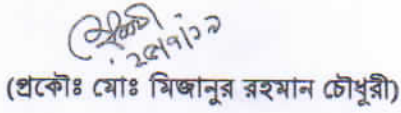 ২৫/৭/১৯
(প্রকৌঃ মোঃ মিজানুর রহমান চৌধুরী)